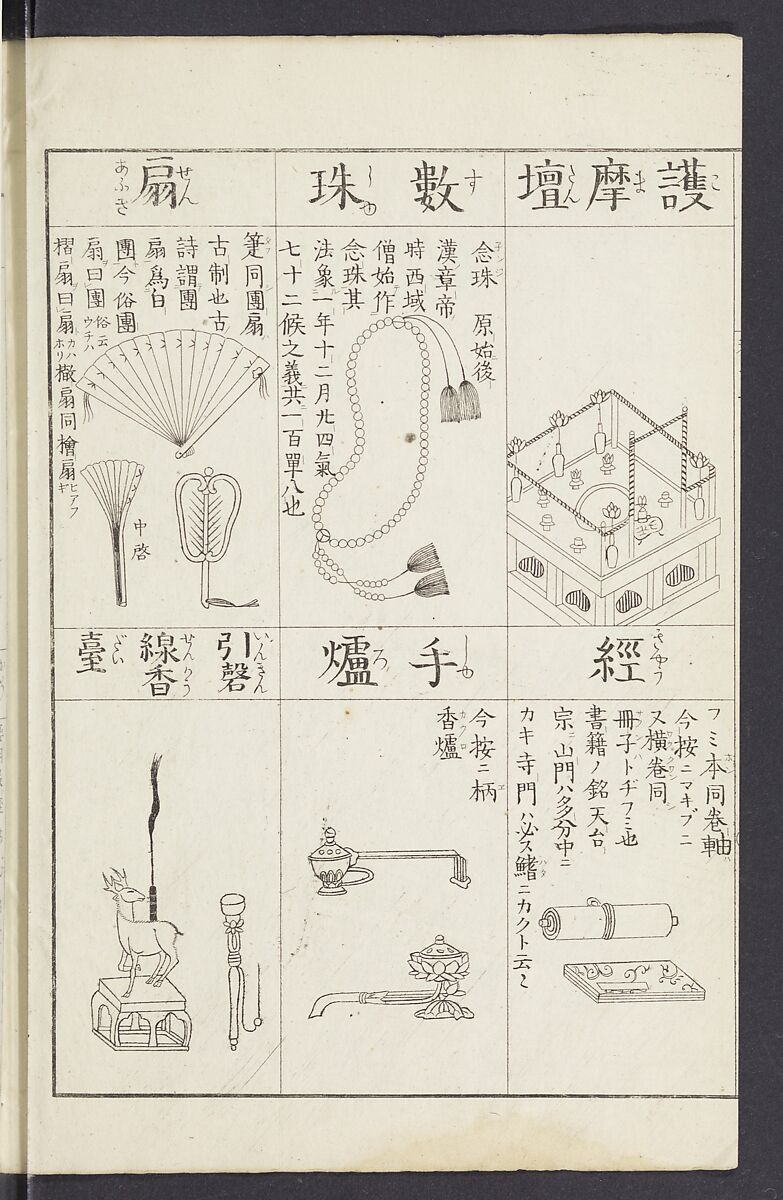 護摩壇
こまだん
數珠
すしゆ
念珠 原始後
漢章帝
時西域
僧始作
念珠其
法象一年十二月廿四氣
七十二候之義共一百單八也
扇
せん
あふぎ
箑同團扇
古制也古
詩謂團
扇爲白
團今俗團
扇曰團 俗云ウチハ
摺扇曰扇 カハホリ 撒扇同 檜扇 ヒアフギ
中啓
經
きやう
フミ本同卷軸
今按ニマキブニ
又横卷同
冊子トヂフミ也
書籍ノ銘天台
宗ニ山門ハ多分中ニ
カキ寺門ハ必ス鰭ニカクト云々
手爐
しゆろ
今按ニ柄
香爐
引磬
いんきん
線香臺
せんかうだい